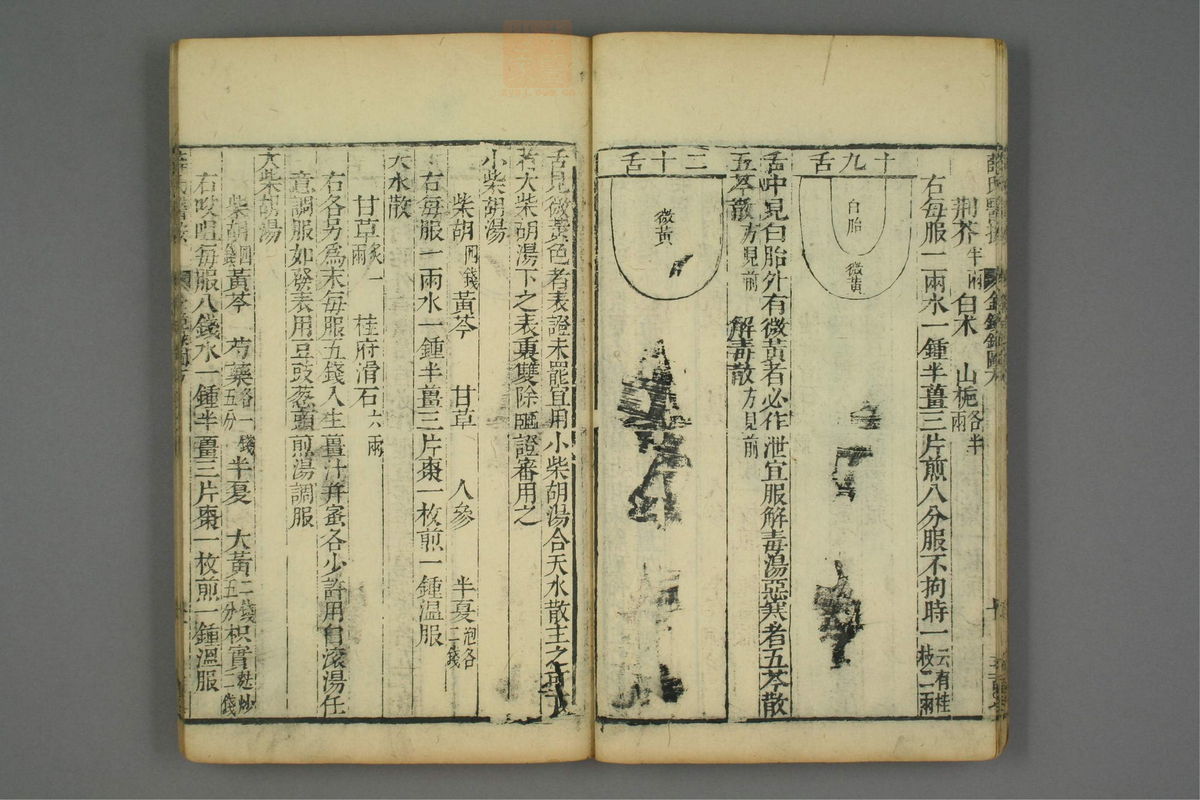 荆芥半兩 白术 山梔各半兩
右每服一兩水一鍾半薑三片煎八分服不拘時一云有桂枝二兩
十九舌
白胎
微黃
舌中見白胎外有微黃者必作泄宜服解毒湯惡寒者五苓散
五苓散方見前 解毒散方見前
二十舌
微黃
舌見微黃色者表證未罷宜用小柴胡湯合天水散主之
若大柴胡湯下之表裏雙除臨證審用之
小柴胡湯
柴胡四錢 黃芩 甘草 人參 半夏泡各二錢
右每服一兩水一鍾半薑三片棗一枚煎一鍾温服
天水散
甘草炙一兩 桂府滑石六兩
右各另爲末每服五錢入生薑汁并蜜各少許用白滚湯任
意調服如發表用豆豉葱頭煎湯調服
大柴胡湯
柴胡四錢 黃芩 芍藥各一錢五分 半夏 大黃二錢五分 枳實麩炒二錢
右㕮咀每服八錢水一鍾半薑三片棗一枚煎一鍾温服